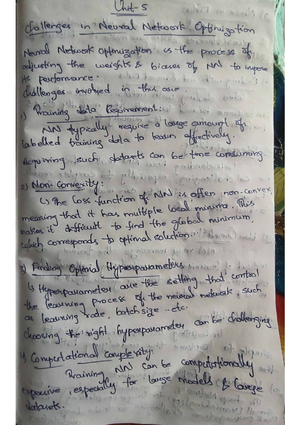 Unit-5
Challenges in Neural Network Optimization
Neural Network Optimization is the process of
adjusting the weights & biases of NN to impove
its performance.
challenges involved in this are
1) Training data Requirement:
NN typically require a large amount of
labelled training data to learn effectively.
Acquiring such datasets can be time consuming.
2) Non-convexity:
↳ The loss function of NN is often non-convex,
meaning that it has multiple local minima. This
makes it difficult to find the global minimum,
which corresponds to optimal solution.
3) Finding Optimal Hyperparameters
↳ Hyperparameter are the setting that control
the learning process of the neural network, such
as learning rate, batch size - etc.
Choosing the right hyperparameter can be challenging
4) Computational complexity:
Training NN can be computationally
expensive, especially for large models & large
datasets.